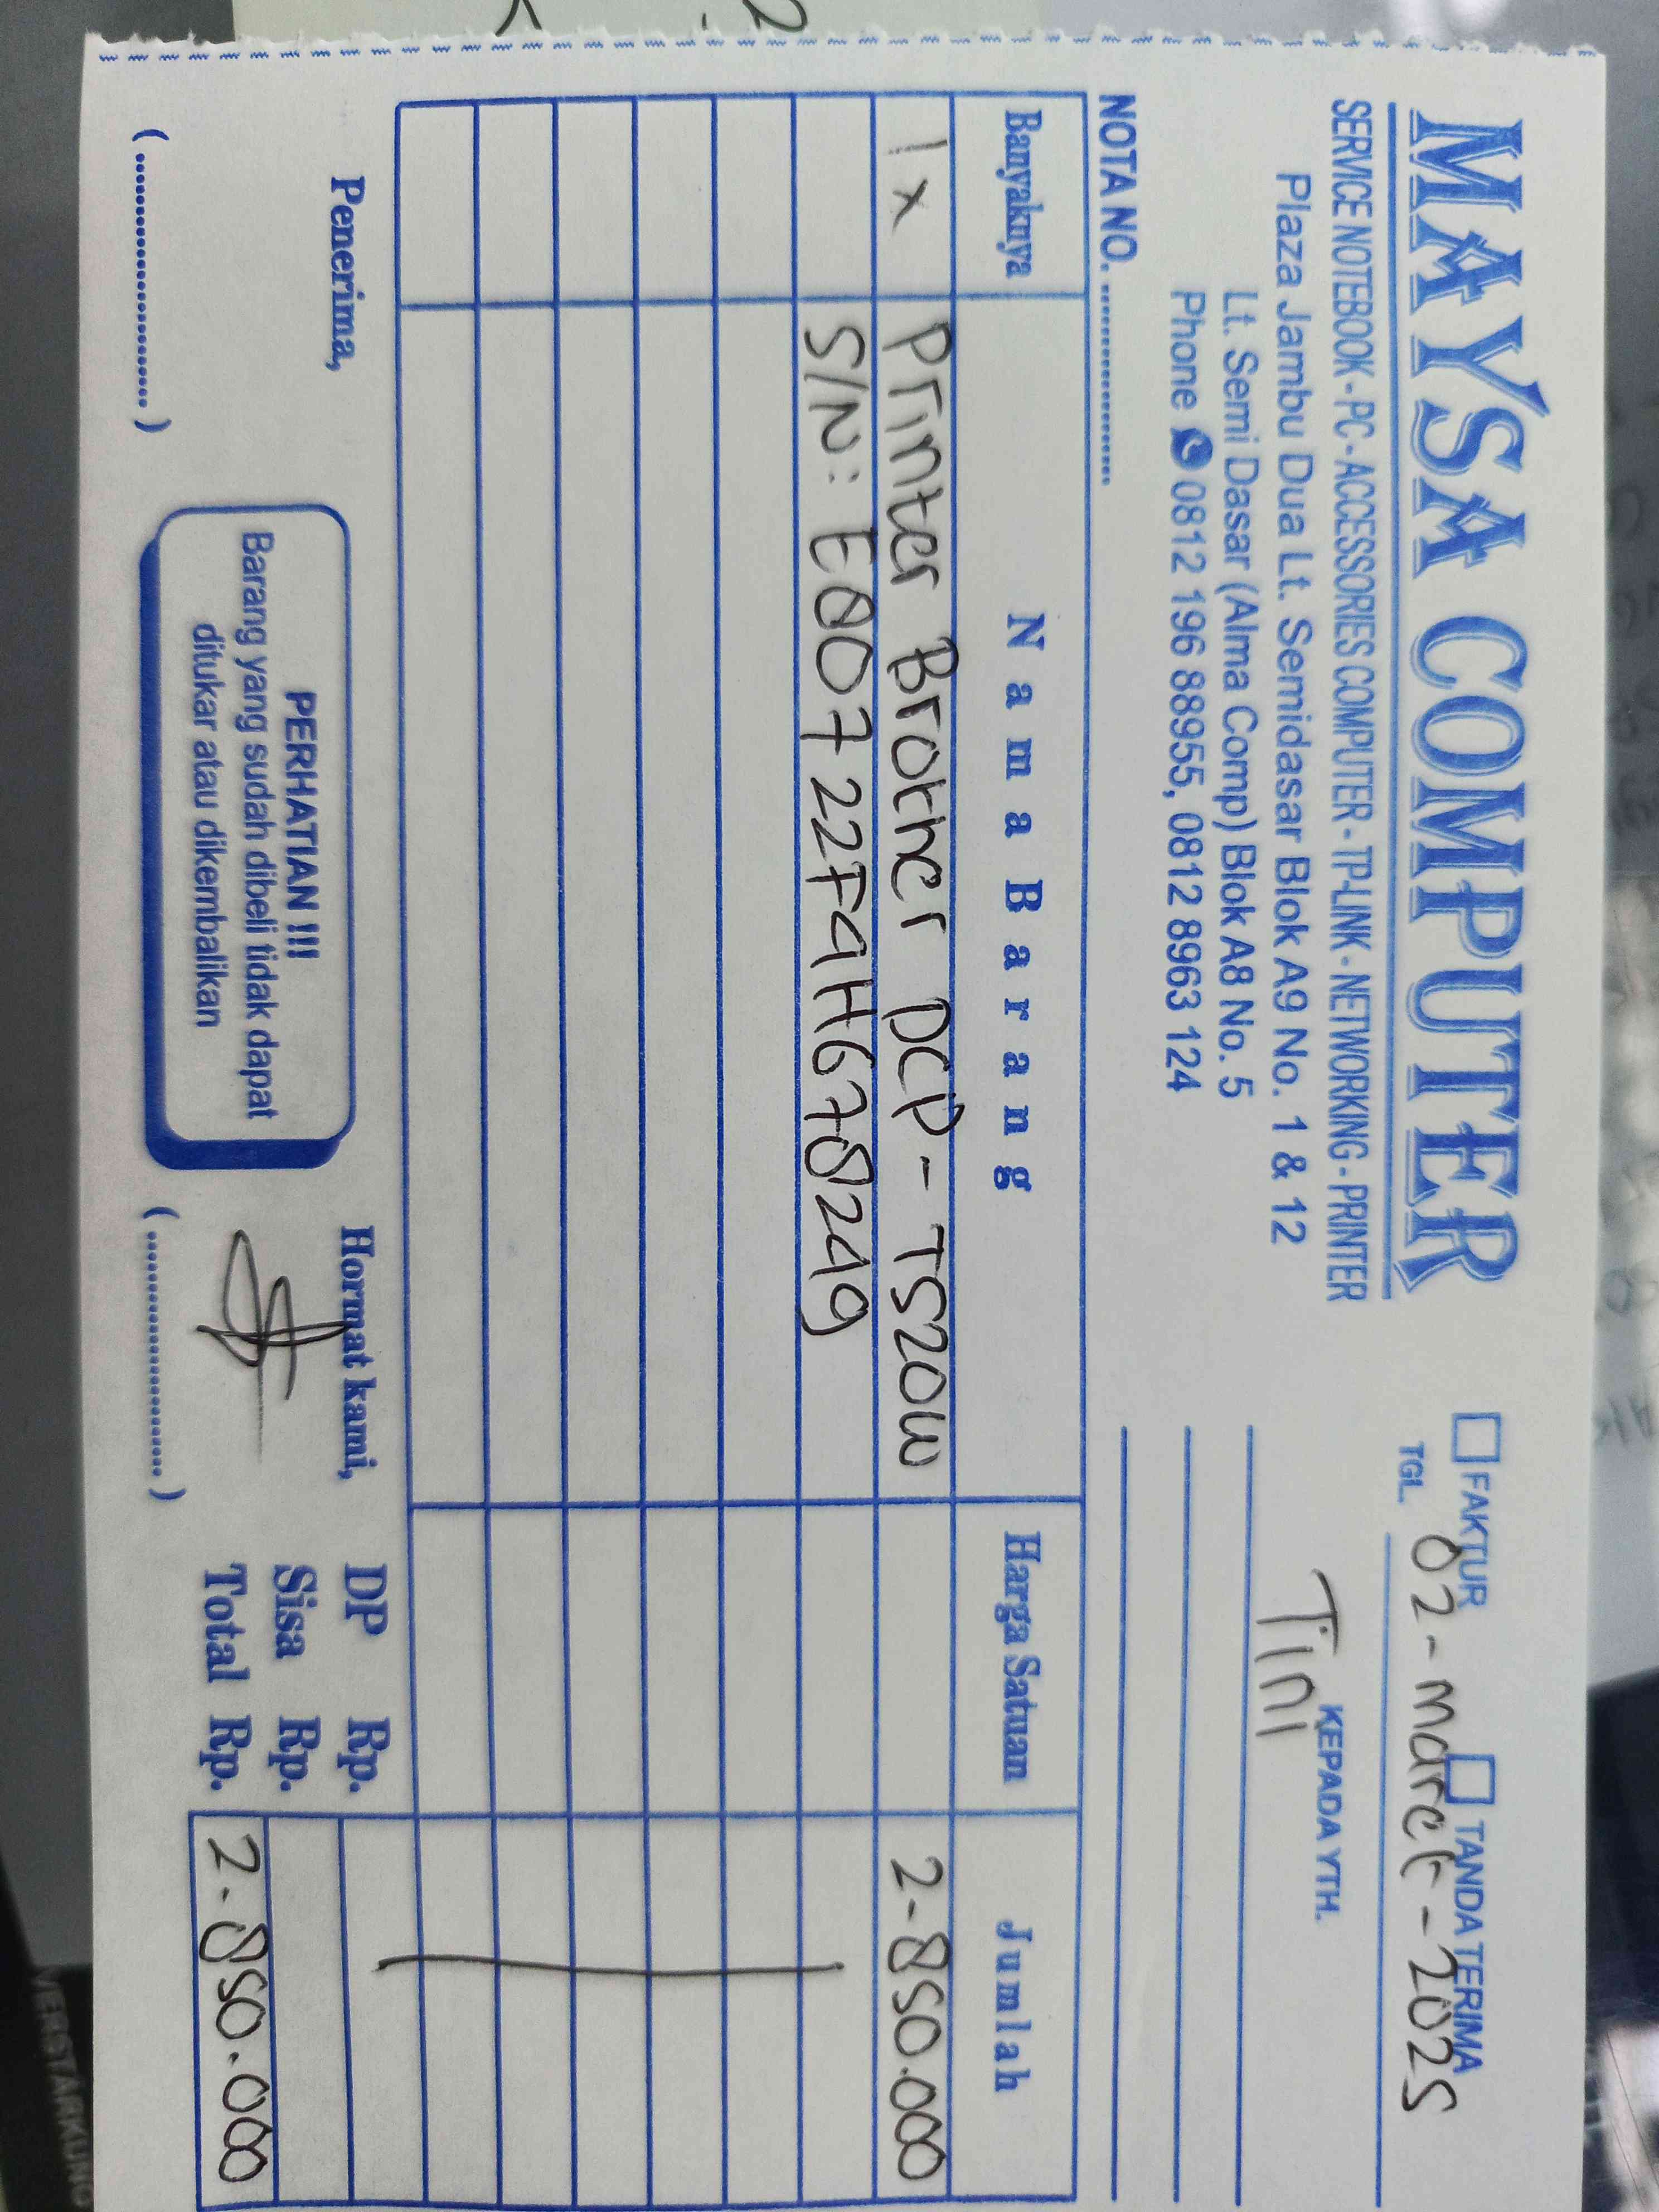 MAYSA COMPUTER
SERVICE NOTEBOOK - PC - ACCESSORIES COMPUTER - TP-LINK - NETWORKING - PRINTER
Plaza Jambu Dua Lt. Semidasar Blok A9 No. 1 & 12
Lt. Semi Dasar (Alma Comp) Blok A8 No. 5
Phone 0812 196 88955, 0812 8963 124
FAKTUR TANDA TERIMA
TGL. 02 - maret - 2025
KEPADA YTH.
Tini
NOTA NO. ....................
Banyaknya Nama Barang Harga Satuan Jumlah
1 x Printer Brother DCP - T520W 2.850.000
S/N: E80722F4H678249
Penerima,
(..............................)
PERHATIAN !!!
Barang yang sudah dibeli tidak dapat
ditukar atau dikembalikan
Hormat kami,
(..............................)
DP Rp.
Sisa Rp.
Total Rp. 2.850.000